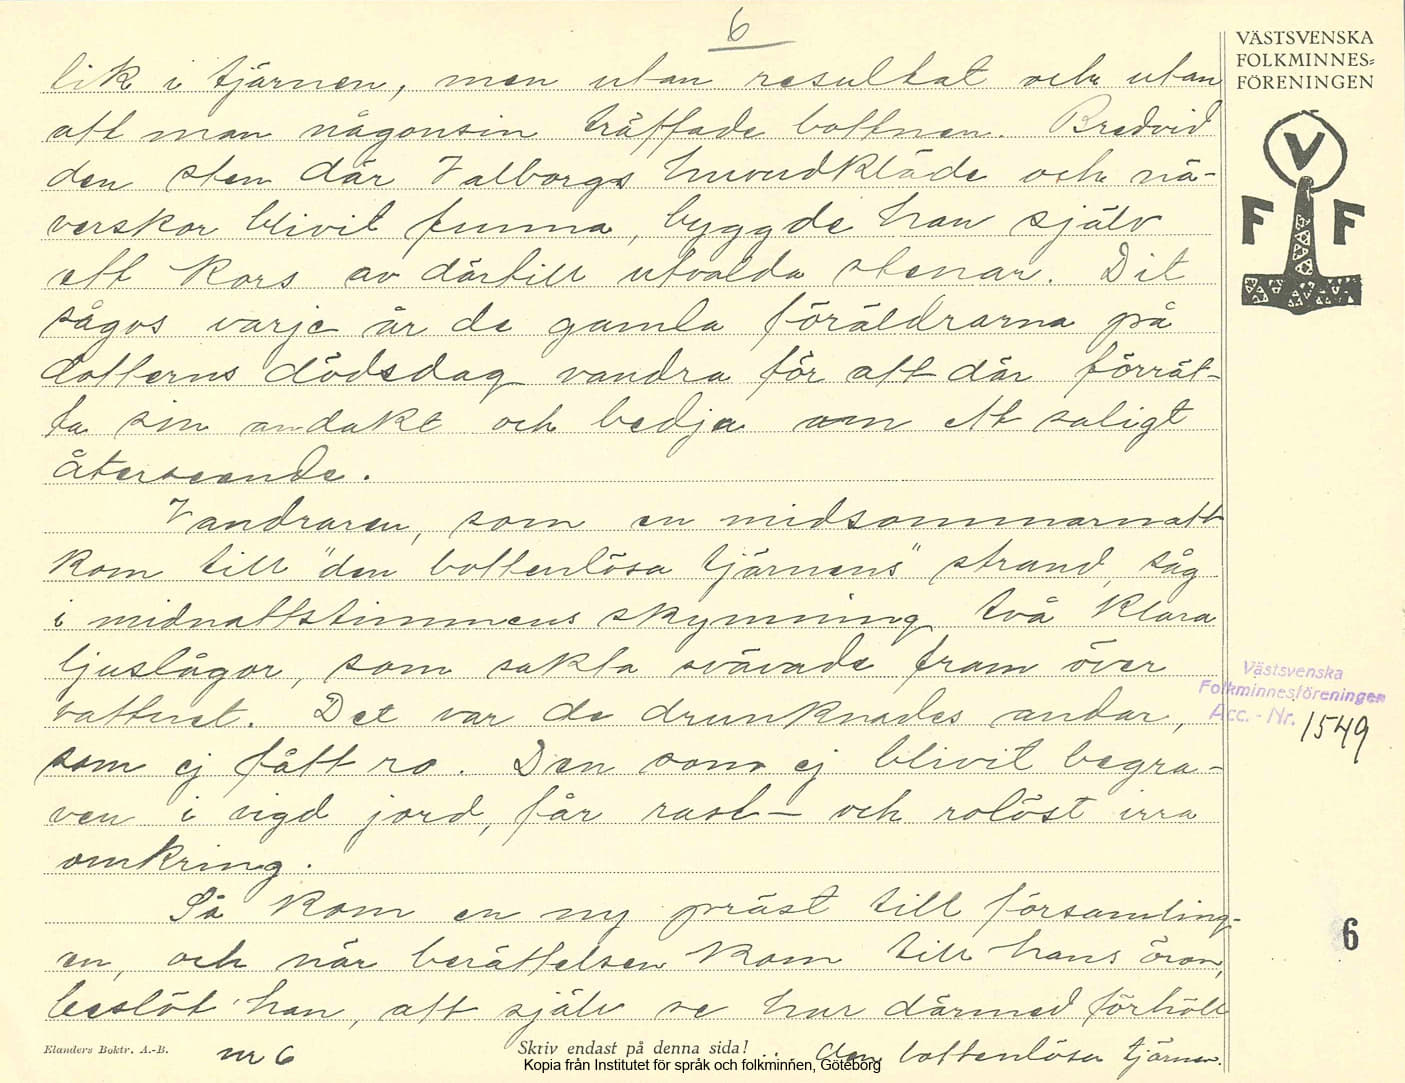 6
VÄSTSVENSKA
FOLKMINNES=
FÖRENINGEN
V
F F
lik i tjärnen, men utan resultat och utan
att man någonsin träffade bottnen. Bredvid
den sten där Valborgs huvudkläde och nä-
verskor blivit funna, byggde han själv
ett kors av därtill utvalda stenar. Dit
sågos varje år de gamla föräldrarna på
dotterns dödsdag vandra för att där förrät-
ta sin andakt och bedja om ett saligt
återseende.
Vandraren, som en midsommarnatt
kom till "den bottenlösa tjärnens" strand, såg
i midnattstimmens skymning två klara
ljuslågor, som sakta svävade fram över
vattnet. Det var de drunknades andar,
som ej fått ro. Den som ej blivit begra-
ven i vigd jord, får rast- och rolöst irra
omkring.
Så kom en ny präst till församling-
en, och när berättelsen kom till hans öron,
beslöt han, att själv se hur därmed förhöll
Västsvenska
Folkminnesföreningen
Acc. - Nr. 1549
6
Elanders Boktr. A.-B.
nr 6
Skriv endast på denna sida!
den bottenlösa tjärnen.
Kopia från Institutet för språk och folkminnen, Göteborg